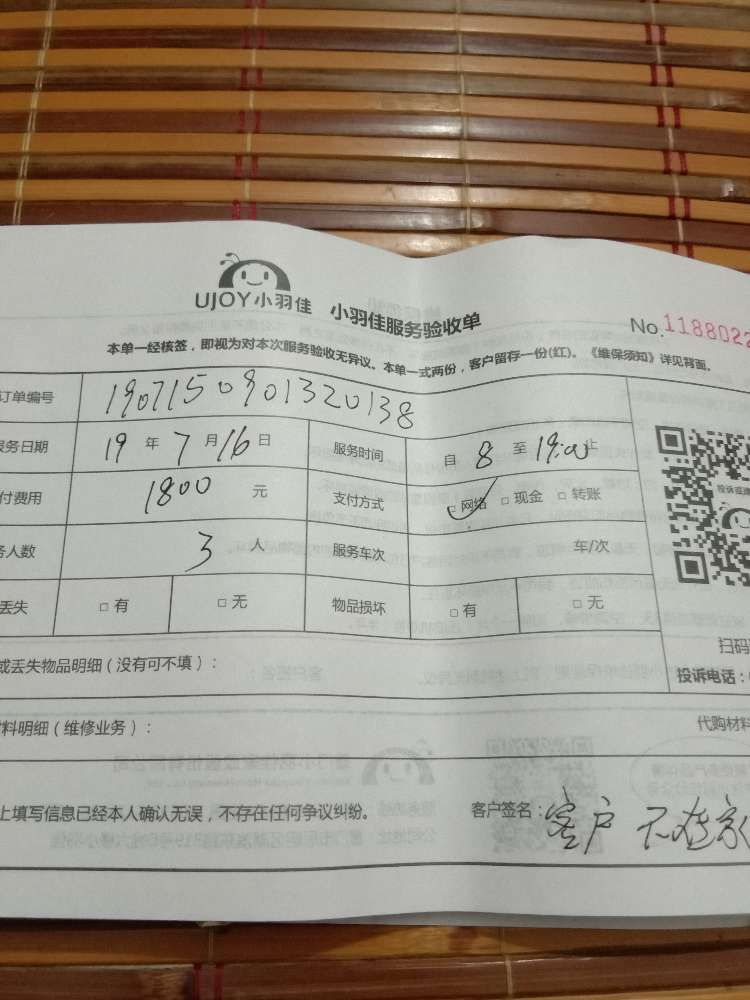 UJOY小羽佳 小羽佳服务验收单
No.1188022
本单一经核签，即视为对本次服务验收无异议。本单一式两份，客户留存一份(红)。《维保须知》详见背面。
订单编号 190715090132013​8
服务日期 19 年 7 月 16 日 服务时间 自 8 至 19:00 止
付费用 1800 元 支付方式 □网络 □现金 □转账
务人数 3 人 服务车次 车/次
丢失 □有 □无 物品损坏 □有 □无
投诉或
扫码
或丢失物品明细（没有可不填）：
投诉电话：
材料明细（维修业务）：
代购材料
上填写信息已经本人确认无误，不存在任何争议纠纷。
客户签名：客户 不在家